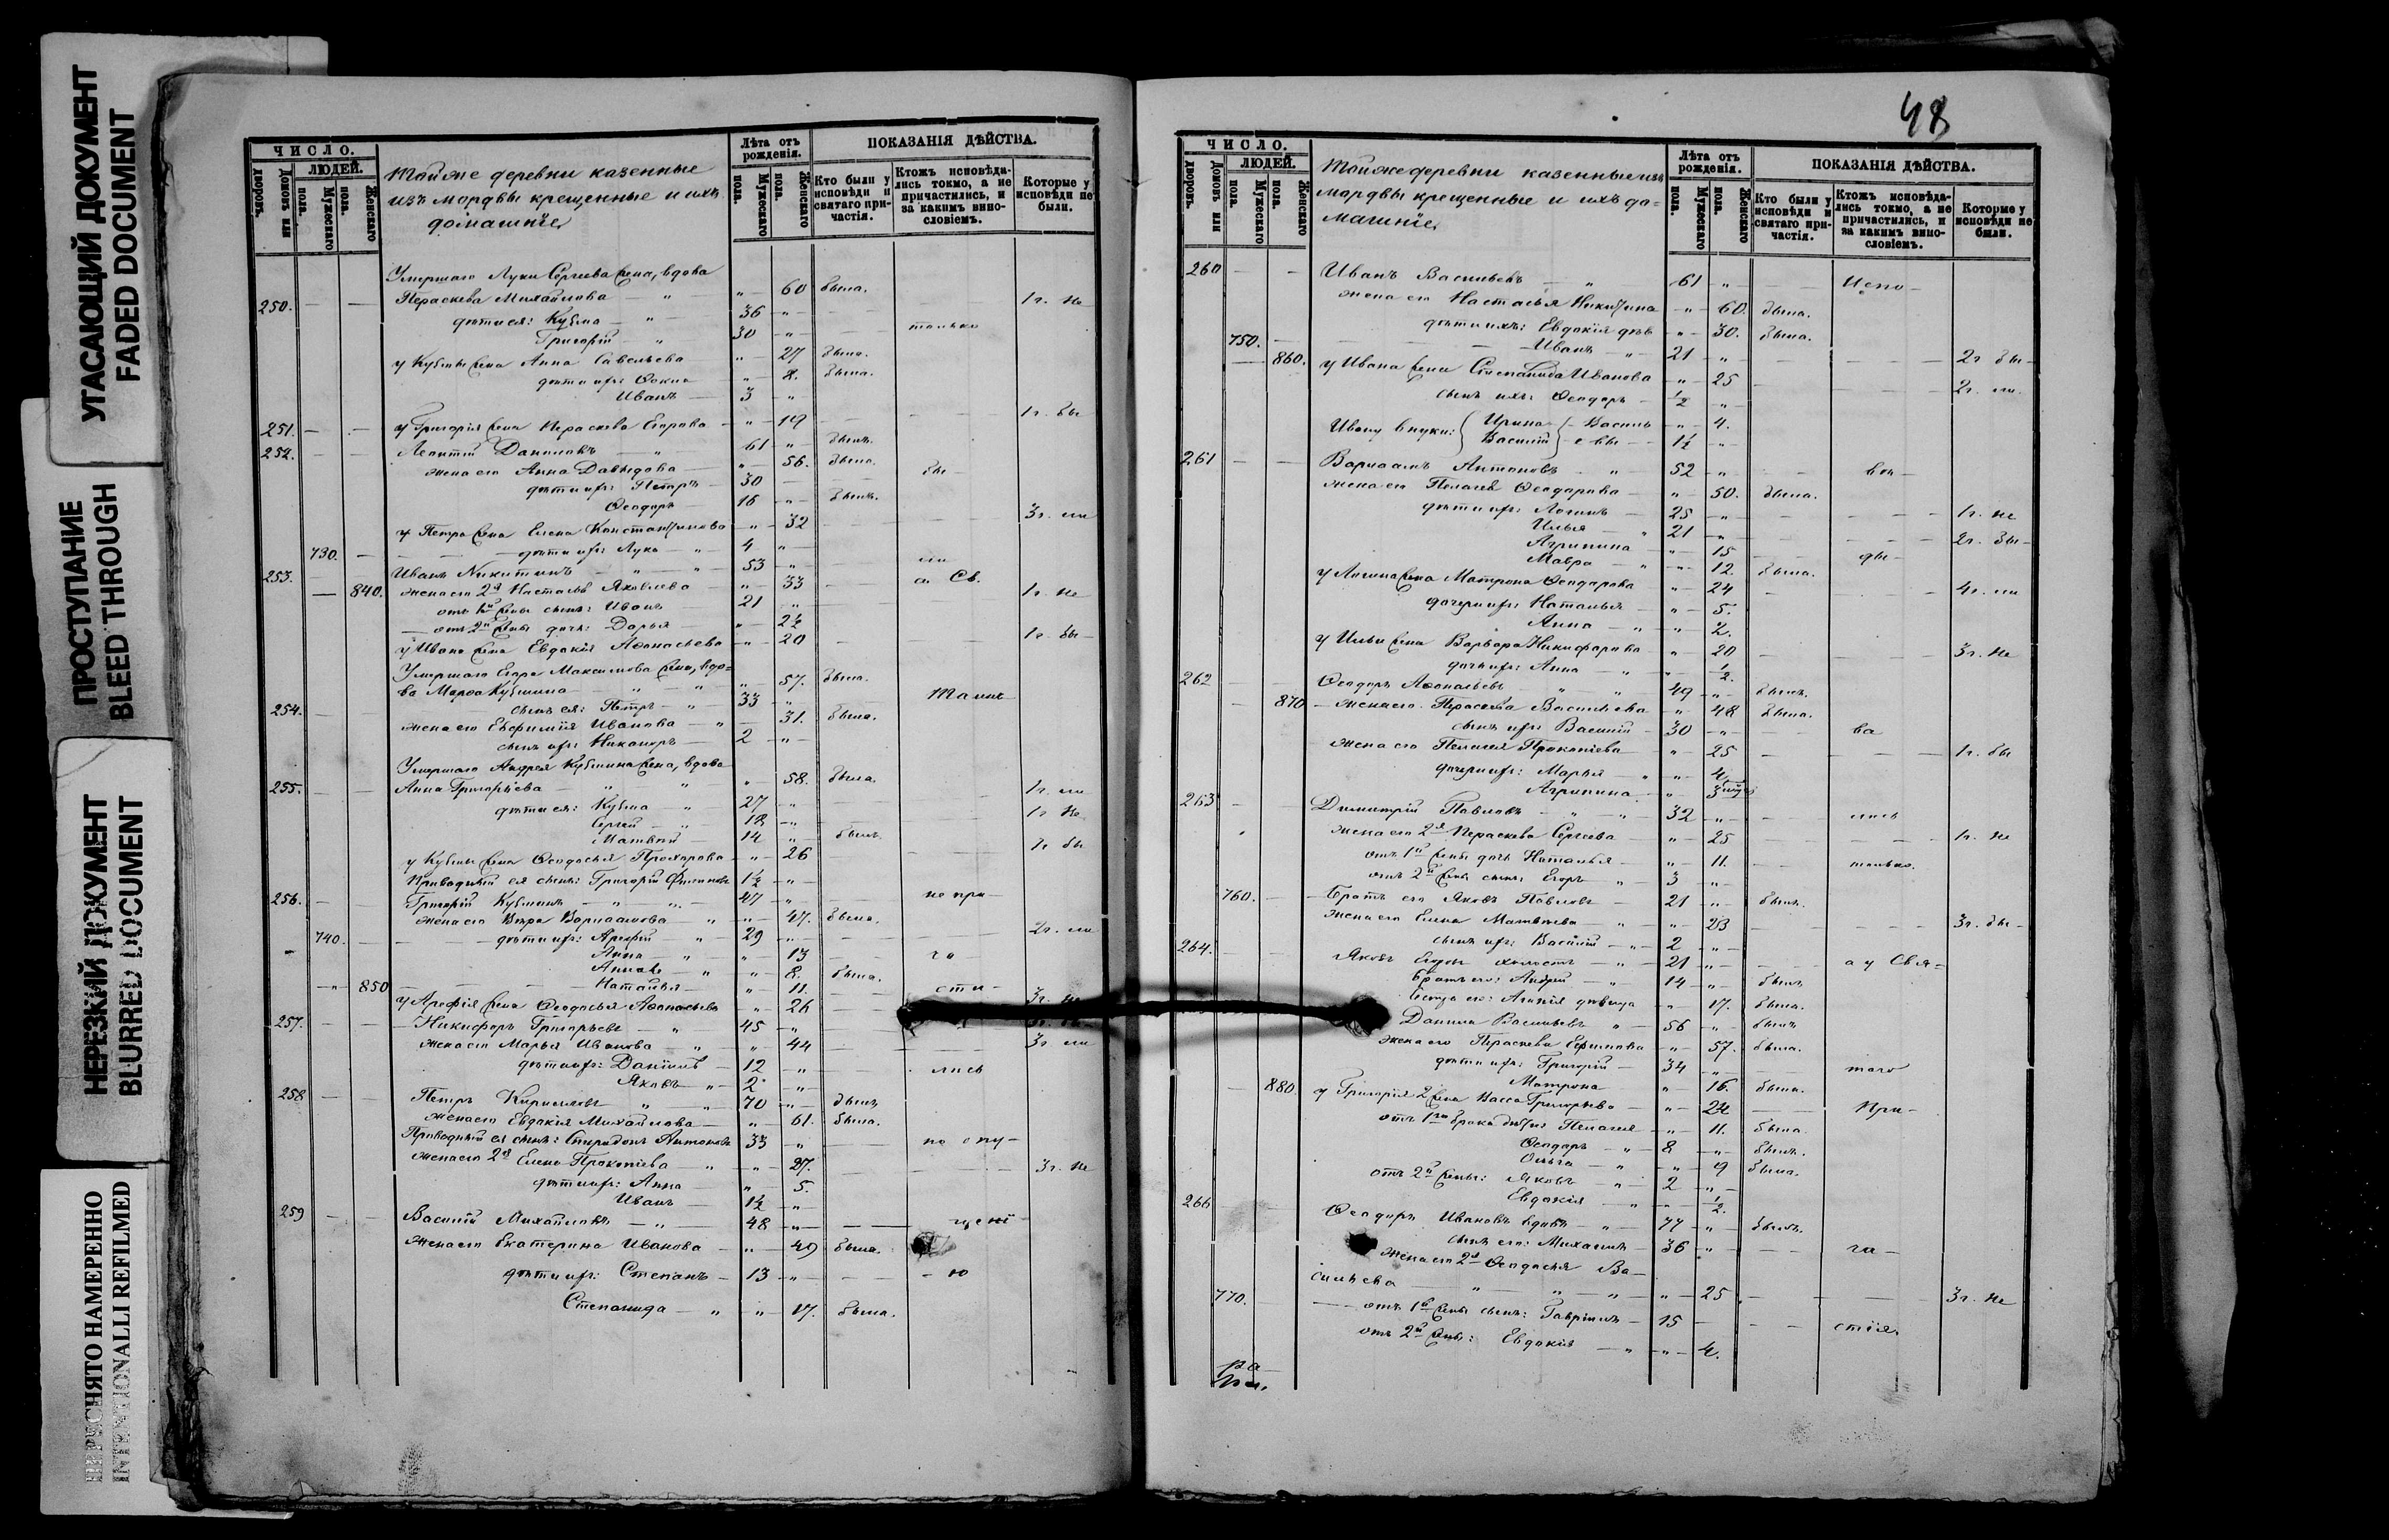 УГАСАЮЩИЙ ДОКУМЕНТ
FADED DOCUMENT
ПРОСТУПАНИЕ
BLEED THROUGH
НЕРЕЗКИЙ ДОКУМЕНТ
BLURRED DOCUMENT
ПЕРЕСНЯТО НАМЕРЕННО
INTENTIONALLI REFILMED
ЧИСЛО.
Домовъ или дворовъ.
ЛЮДЕЙ.
Мужескаго пола.
Женскаго пола.
Тойже деревни казенные
изъ мордвы крещенные и ихъ
домашніе
Лѣта отъ рожденія.
Мужескаго пола.
Женскаго пола.
ПОКАЗАНІЯ ДѢЙСТВА.
Кто были у исповѣди и святаго причастія.
Ктожъ исповѣдались токмо, а не причастились, и за какимъ винословіемъ.
Которые у исповѣди не были.
Умершаго Луки Сергѣева жена, вдова
250. Пераскева Михайлова " 60 была. 1 г. не
дѣти ея: Кузма 36 "
Григорій 30 " только
у Кузмы жена Анна Савельева " 27 была.
дѣти ихъ: Фекла " 8. была.
Иванъ 3 "
251. у Григорія жена Пераскева Егорова " 19 1 г. бы
252. Леонтій Даниловъ 61 " былъ.
жена его Анна Давыдова " 56. была.
дѣти ихъ: Петръ 30 бы
Ѳеодоръ 16 " былъ.
у Петра жена Елена Константинова " 32 3 г. ли
730. дѣти ихъ: Лука 4 "
253. Иванъ Никитинъ 53 " ли
840. жена его 2я Настасья Яковлева " 33 а Св. 1 г. не
отъ 1й жены сынъ: Иванъ 21 "
отъ 2й жены дочь: Дарья " 2½
у Ивана жена Евдокія Аѳонасьева " 20 1 г. бы
Умершаго Егора Максимова жена, вдо=
ва Марѳа Кузмина " 57. была.
254. сынъ ея: Петръ 33 " Таинъ
жена его Евфимія Иванова " 31. была.
сынъ ихъ Никаноръ 2 "
Умершаго Андрея Кузмина жена, вдова
255. Анна Григорьева " 58. была. 1 г. ли
дѣти ея: Кузма 27 "
Сергей 18 " 1 г. не
Матвей 14 " былъ
у Кузмы жена Ѳеодосья Прохорова " 26 1 г. бы
Приводный ея сынъ: Григорій Филиповъ 1½ "
256. Григорій Кузминъ 47 " не при
жена его Вѣра Варлаамова " 47. была.
740. дѣти ихъ: Арефій 29 " 2 г. ли
Анна " 13 ча
" 8. была.
850 Наталья " 11. сти-
у Арефія жена Ѳеодосья Аѳонасьева " 26 3 г. не
257. Никифоръ Григорьевъ 45 " 3 г. бы
жена его Марья Иванова " 44 3 г. ли
дѣти ихъ: Даніилъ 12 " лись
Яковъ 2 "
258 Петръ Кириловъ 70 " былъ
жена его Евдокія Михайлова " 61. была.
Приводный ея сынъ: Спиридонъ Антоновъ 33 " по опу-
жена его 2я Елена Прокопіева " 27. 3 г. не
дѣти ихъ: Анна " 5.
Иванъ 1½ "
259 Василій Михайловъ 48 " щені
жена его Екатерина Иванова " 49 была.
дѣти ихъ: Степанъ 13 " - ю
Степанида " 17. была.
48
ЧИСЛО.
Домовъ или дворовъ.
ЛЮДЕЙ.
Мужескаго пола.
Женскаго пола.
Тойже деревни казенные изъ
мордвы крещенные и ихъ до=
машніе
Лѣта отъ рожденія.
Мужескаго пола.
Женскаго пола.
ПОКАЗАНІЯ ДѢЙСТВА.
Кто были у исповѣди и святаго причастія.
Ктожъ исповѣдались токмо, а не причастились, и за какимъ винословіемъ.
Которые у исповѣди не были.
260 Иванъ Васильевъ 61 " Испо-
жена его Настасья Никитина " 60. была.
дѣти ихъ: Евдокія дѣв " 30. была.
750. Иванъ 21 " 2 г. бы-
860. у Ивана жена Степанида Иванова " 25 2 г. ли.
сынъ ихъ: Ѳеодоръ ½ "
Ивану внуки: Ирина Василь " 4.
Василій евы 1½ "
261 Варлаамъ Антоновъ 52 " вѣ-
жена его Пелагея Ѳеодорова " 50. была.
дѣти ихъ: Логинъ 25 " 1 г. не
Илья 21 " 2 г. бы-
Агрипина " 15 ды-
Мавра " 12. была.
у Логина жена Матрона Ѳеодорова " 24 4 г. ли
дочери ихъ: Наталья " 5.
Анна " 2.
у Ильи жена Варвара Никифорова " 20 3 г. не
дочь ихъ: Анна " ½.
262 Ѳеодоръ Аѳонасьевъ 49 " былъ.
870 жена его Пераскева Васильева " 48 была.
сынъ ихъ Василій 30 " ва
жена его Пелагея Прокопіева " 25 1 г. бы
дочери ихъ: Марья " 4.
Агрипина "
263 Димитрій Павловъ 32 " лись
жена его 2я Пераскева Сергеева " 25 1 г. не
отъ 1й жены дочь Наталья " 11. только.
отъ 2й жены сынъ Егоръ 3 "
760. Братъ его Яковъ Павловъ 21 " былъ.
жена его Елена Матвѣева " 23 3 г. бы-
сынъ ихъ: Василій 2 "
264. Яковъ холостъ 21 " а у Свя=
Братъ его: Андрей 14 " былъ
Сестра его: дѣвица " 17. была.
Данила Васильевъ 56 " былъ
жена его Пераскева Ефимова " 57. была.
дѣти ихъ: Григорій 34 " таго
880. Матрона " 16. была.
у Григорія 2 жена Васса Григорьева " 24 При-
отъ 1го брака дѣти Пелагея " 11. была.
Ѳеодоръ 8 " былъ.
Ольга " 9 была.
отъ 2й жены: Яковъ 2 "
Евдокія " ½.
266 Ѳеодоръ Ивановъ вдовъ 77 " былъ.
сынъ его: Михаилъ 36 " ча-
жена его 2я Ѳеодосья Ва-
770. сильева " 25 3 г. не
отъ 1й жены сынъ: Гавріилъ 15 стія.
отъ 2й жены: Евдокія " 4.